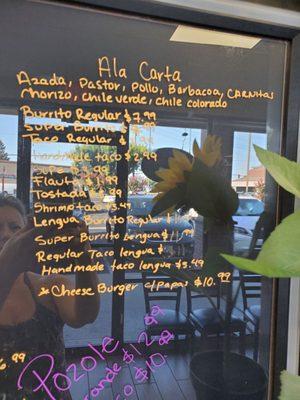 Ala Carta
Azada, Pastor, Pollo, Barbacoa, CARNitas
Chorizo, chile verde, chile colorado
Burrito Regular $7.99
Super Burrito $
Taco Regular $
Handmade taco $2.99
Sope $
Flaut
Tostada $
Shrimp taco $3.49
Lengua Burrito Regular $
Super Burrito Lengua $
Regular Taco lengua $
Handmade taco lengua $3.49
Cheese Burger c/papas $10.99
6.99
Pozole
Grande $12.99
$10.